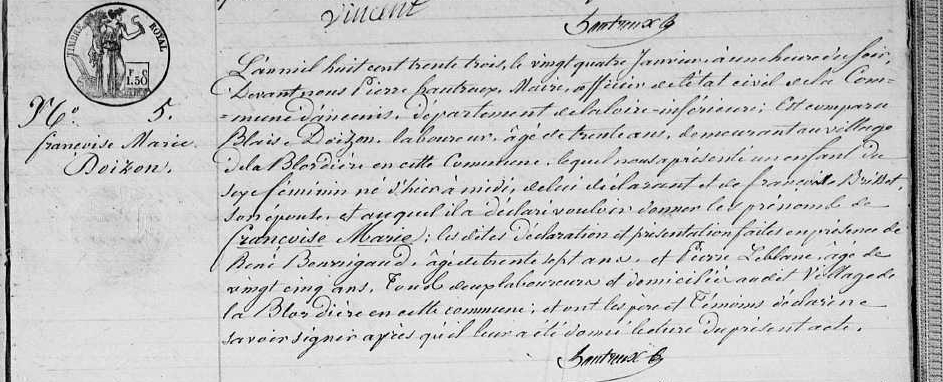 Vincent
hautreux
TIMBRE ROYAL
F C
1.50
No. 5.
françoise Marie
Doizon.
L'an mil huit cent trente trois, le vingt quatre Janvier, à une heure du soir,
Devant nous Pierre hautreux, Maire, officier de l'état civil de la Com-
=mune d'ancenis, département de la loire-inférieure; Est comparu
Blaise Doizon, laboureur, âgé de trente ans, demeurant au village
de la Blordière en cette Commune, lequel nous a présenté un enfant du
sexe féminin né d'hier à midi, de lui déclarant et de françoise Brillet,
son épouse, et auquel il a déclaré vouloir donner les prénoms de
françoise Marie; les dites déclaration et présentation faites en présence de
René Bourigaud, âgé de trente sept ans, et Pierre Leblanc, âgé de
vingt cinq ans, Tous deux laboureurs et domiciliés audit Village de
la Blordière en cette commune; et ont les père et Témoins déclaré ne
savoir signer après qu'il leur a été donné lecture du présent acte.
hautreux